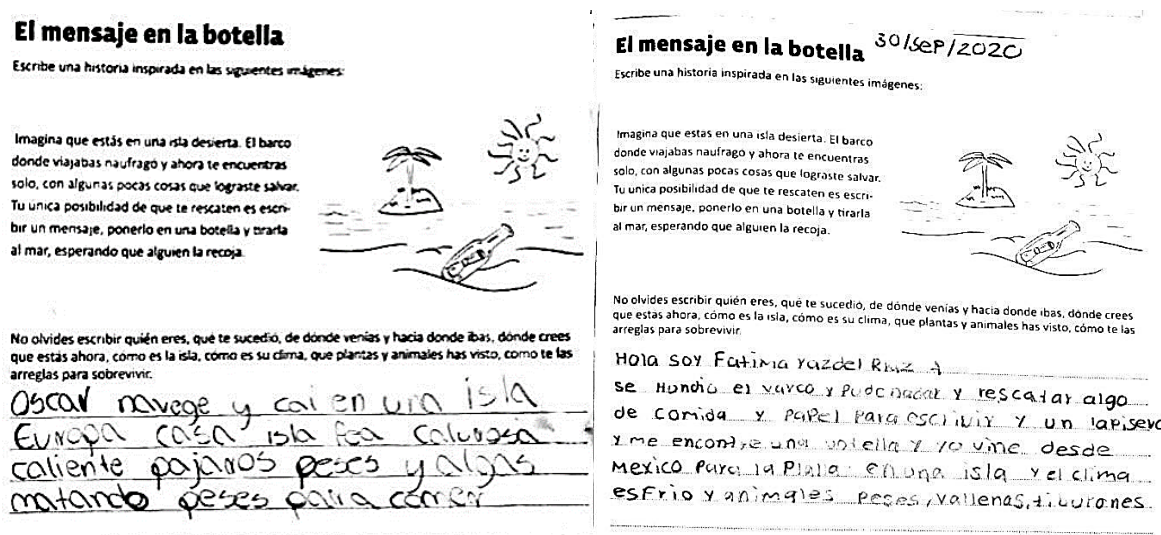 El mensaje en la botella
Escribe una historia inspirada en las siguientes imágenes:
Imagina que estás en una isla desierta. El barco
donde viajabas naufragó y ahora te encuentras
solo, con algunas pocas cosas que lograste salvar.
Tu única posibilidad de que te rescaten es escri-
bir un mensaje, ponerlo en una botella y tirarla
al mar, esperando que alguien la recoja.
No olvides escribir quién eres, qué te sucedió, de dónde venías y hacia donde ibas, dónde crees
que estás ahora, cómo es la isla, cómo es su clima, que plantas y animales has visto, como te las
arreglas para sobrevivir.
Oscar navege y cai en una isla
Europa casa isla fea calurosa
caliente pajaros peses y algas
matando peses para comer
El mensaje en la botella 30/sep/2020
Escribe una historia inspirada en las siguientes imágenes:
Imagina que estas en una isla desierta. El barco
donde viajabas naufrago y ahora te encuentras
solo, con algunas pocas cosas que lograste salvar.
Tu unica posibilidad de que te rescaten es escri-
bir un mensaje, ponerlo en una botella y tirarla
al mar, esperando que alguien la recoja.
No olvides escribir quién eres, qué te sucedió, de dónde venías y hacia donde ibas, dónde crees
que estás ahora, cómo es la isla, cómo es su clima, que plantas y animales has visto, cómo te las
arreglas para sobrevivir.
Hola soy Fatima Yazdel Ruiz
se Hundio el varco y pude nadar y rescatar algo
de comida y papel para escrivir y un lapisero
y me encontre una votella y yo vine desde
Mexico para la Plalla en una isla y el clima
es Frio y animales peses, vallenas, tiburones